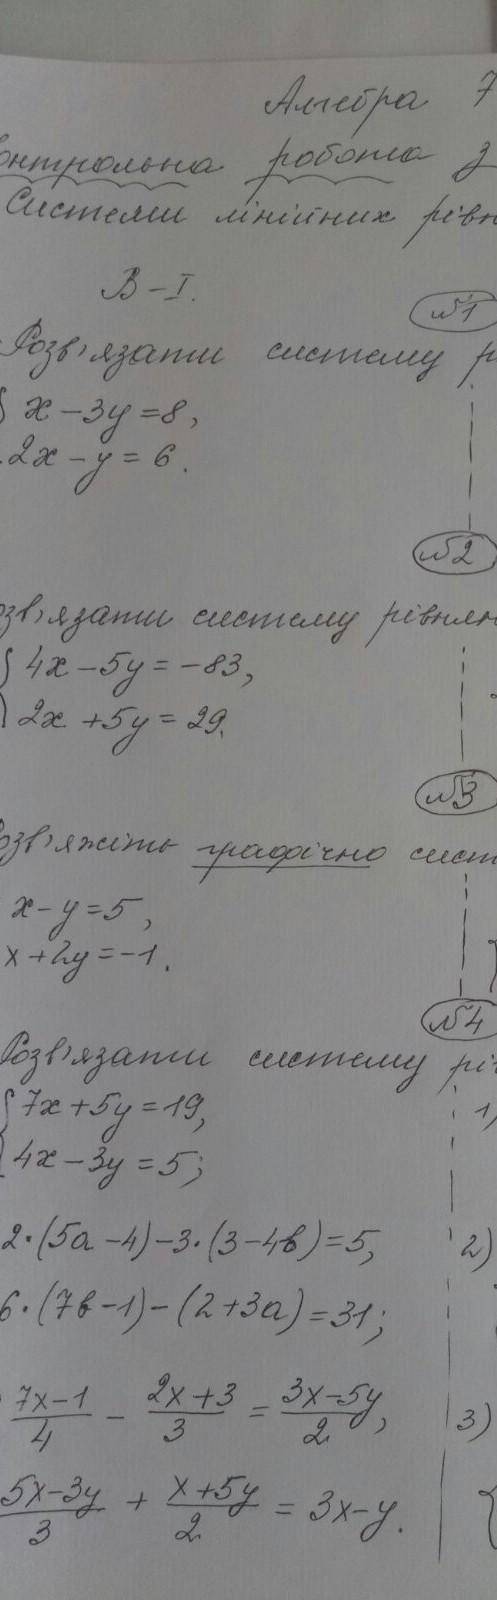 Алгебра 7
онтрольна робота з
Системи лінійних рівн
В-I.
№1
Розв'язати систему р
x - 3y = 8,
2x - y = 6.
№2
озв'язати систему рівнян
{ 4x - 5y = -83,
2x + 5y = 29.
№3
озв'яжіть графічно сист
x - y = 5,
x + 2y = -1.
№4
Розв'язати систему рів
{ 7x + 5y = 19, 1)
4x - 3y = 5;
2·(5a - 4) - 3·(3 - 4b) = 5, 2)
6·(7b - 1) - (2 + 3a) = 31;
(7x - 1)/4 - (2x + 3)/3 = (3x - 5y)/2, 3)
(5x - 3y)/3 + (x + 5y)/2 = 3x - y.